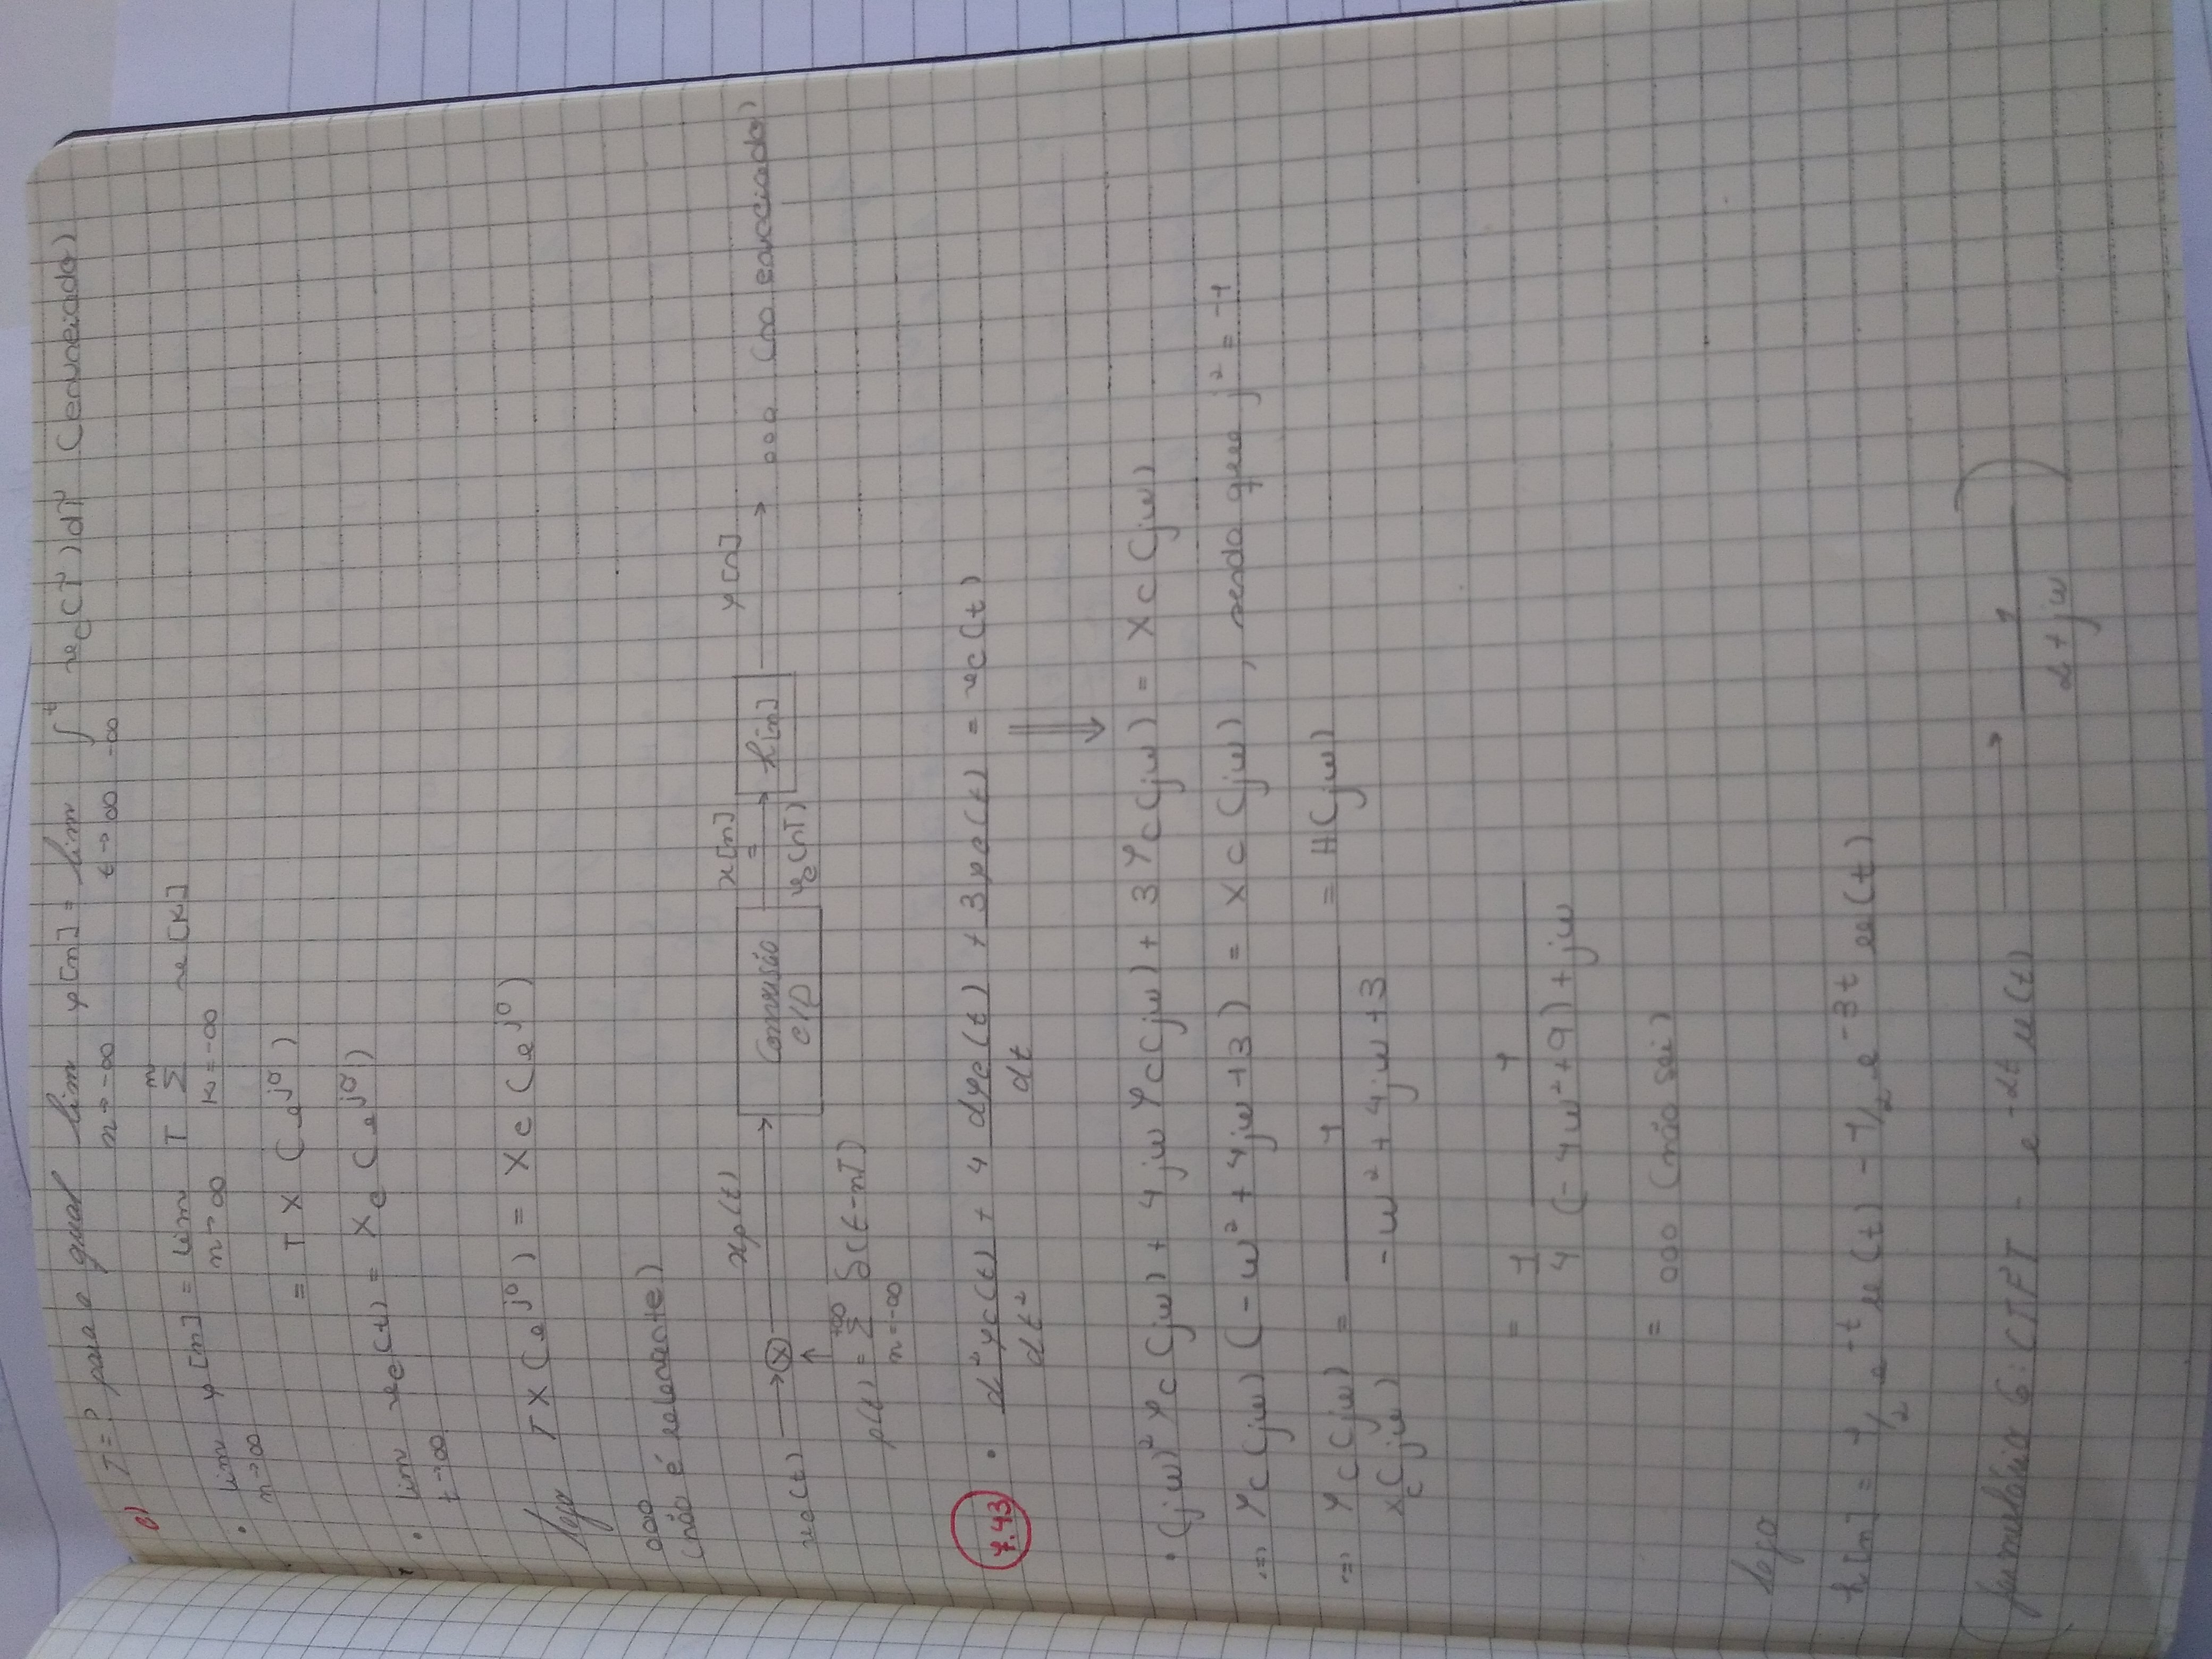 c) T=? para o qual lim n→∞ y[n] = lim t→∞ ∫ -∞ t xc(τ)dτ (enunciado)
• lim n→∞ y[n] = lim n→∞ T Σ k=-∞ n x[k]
= T X (e^j0)
• lim t→∞ xc(t) = Xc (e^j0)
logo TX(e^j0) = Xc (e^j0)
ooo
(não é relevante)
xc(t) → ⊗ xp(t) → Conversão C/D x[n] = yc(nT) → h[n] y[n] → ooo (no enunciado)
p(t) = Σ n=-∞ +∞ δ(t-nT)
7.43 • d²yc(t)/dt² + 4 dyc(t)/dt + 3yc(t) = xc(t)
⇓
• (jω)² Yc(jω) + 4jω Yc(jω) + 3Yc(jω) = Xc(jω)
(=) Yc(jω) (-ω² + 4jω + 3) = Xc(jω), sendo que j² = -1
(=) Yc(jω)/Xc(jω) = 1/(-ω² + 4jω + 3) = H(jω)
= 1/4 1/((-4ω² + 9) + jω)
= ooo (não sei)
logo
h[n] = 1/2 e^-t u(t) - 1/2 e^-3t u(t)
(formulário 6: CTFT - e^-αt u(t) → 1/(α + jω))